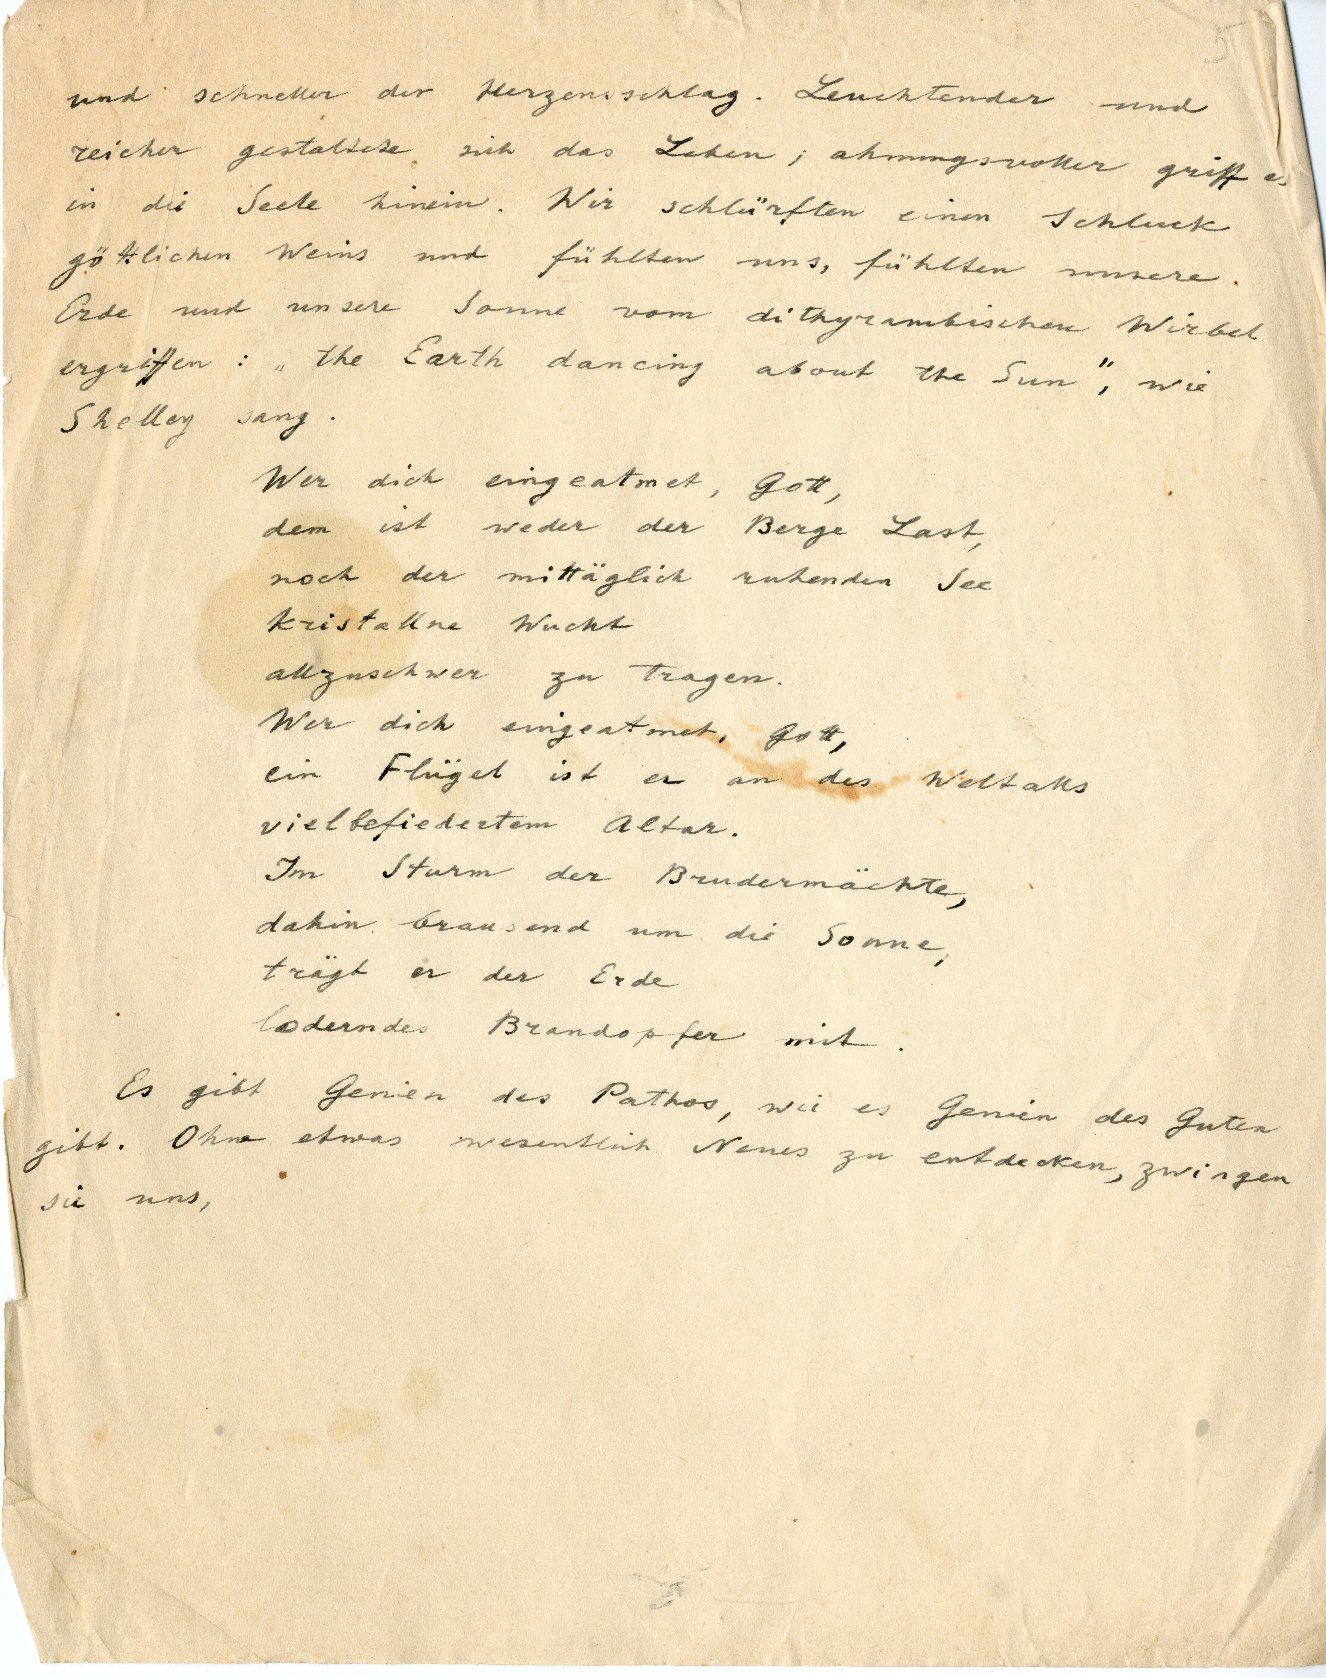 5
und schneller der Herzensschlag. Leuchtender und
reicher gestaltete sich das Leben; ahnungsvoller griff es
in die Seele hinein. Wir schlürften einen Schluck
göttlichen Weins und fühlten uns, fühlten unsere
Erde und unsere Sonne vom dithyrambischen Wirbel
ergriffen: „the Earth dancing about the Sun", wie
Shelley sang.
Wer dich eingeatmet, Gott,
dem ist weder der Berge Last,
noch der mittäglich ruhenden See
kristallne Wucht
allzuschwer zu tragen.
Wer dich eingeatmet, Gott,
ein Flügel ist er an des Weltalls
vielbefiedertem Altar.
Im Sturm der Brudermächte,
dahin brausend um die Sonne,
trägt er der Erde
loderndes Brandopfer mit.
Es gibt Genien des Pathos, wie es Genien des Guten
gibt. Ohne etwas wesentlich Neues zu entdecken, zwingen
sie uns,